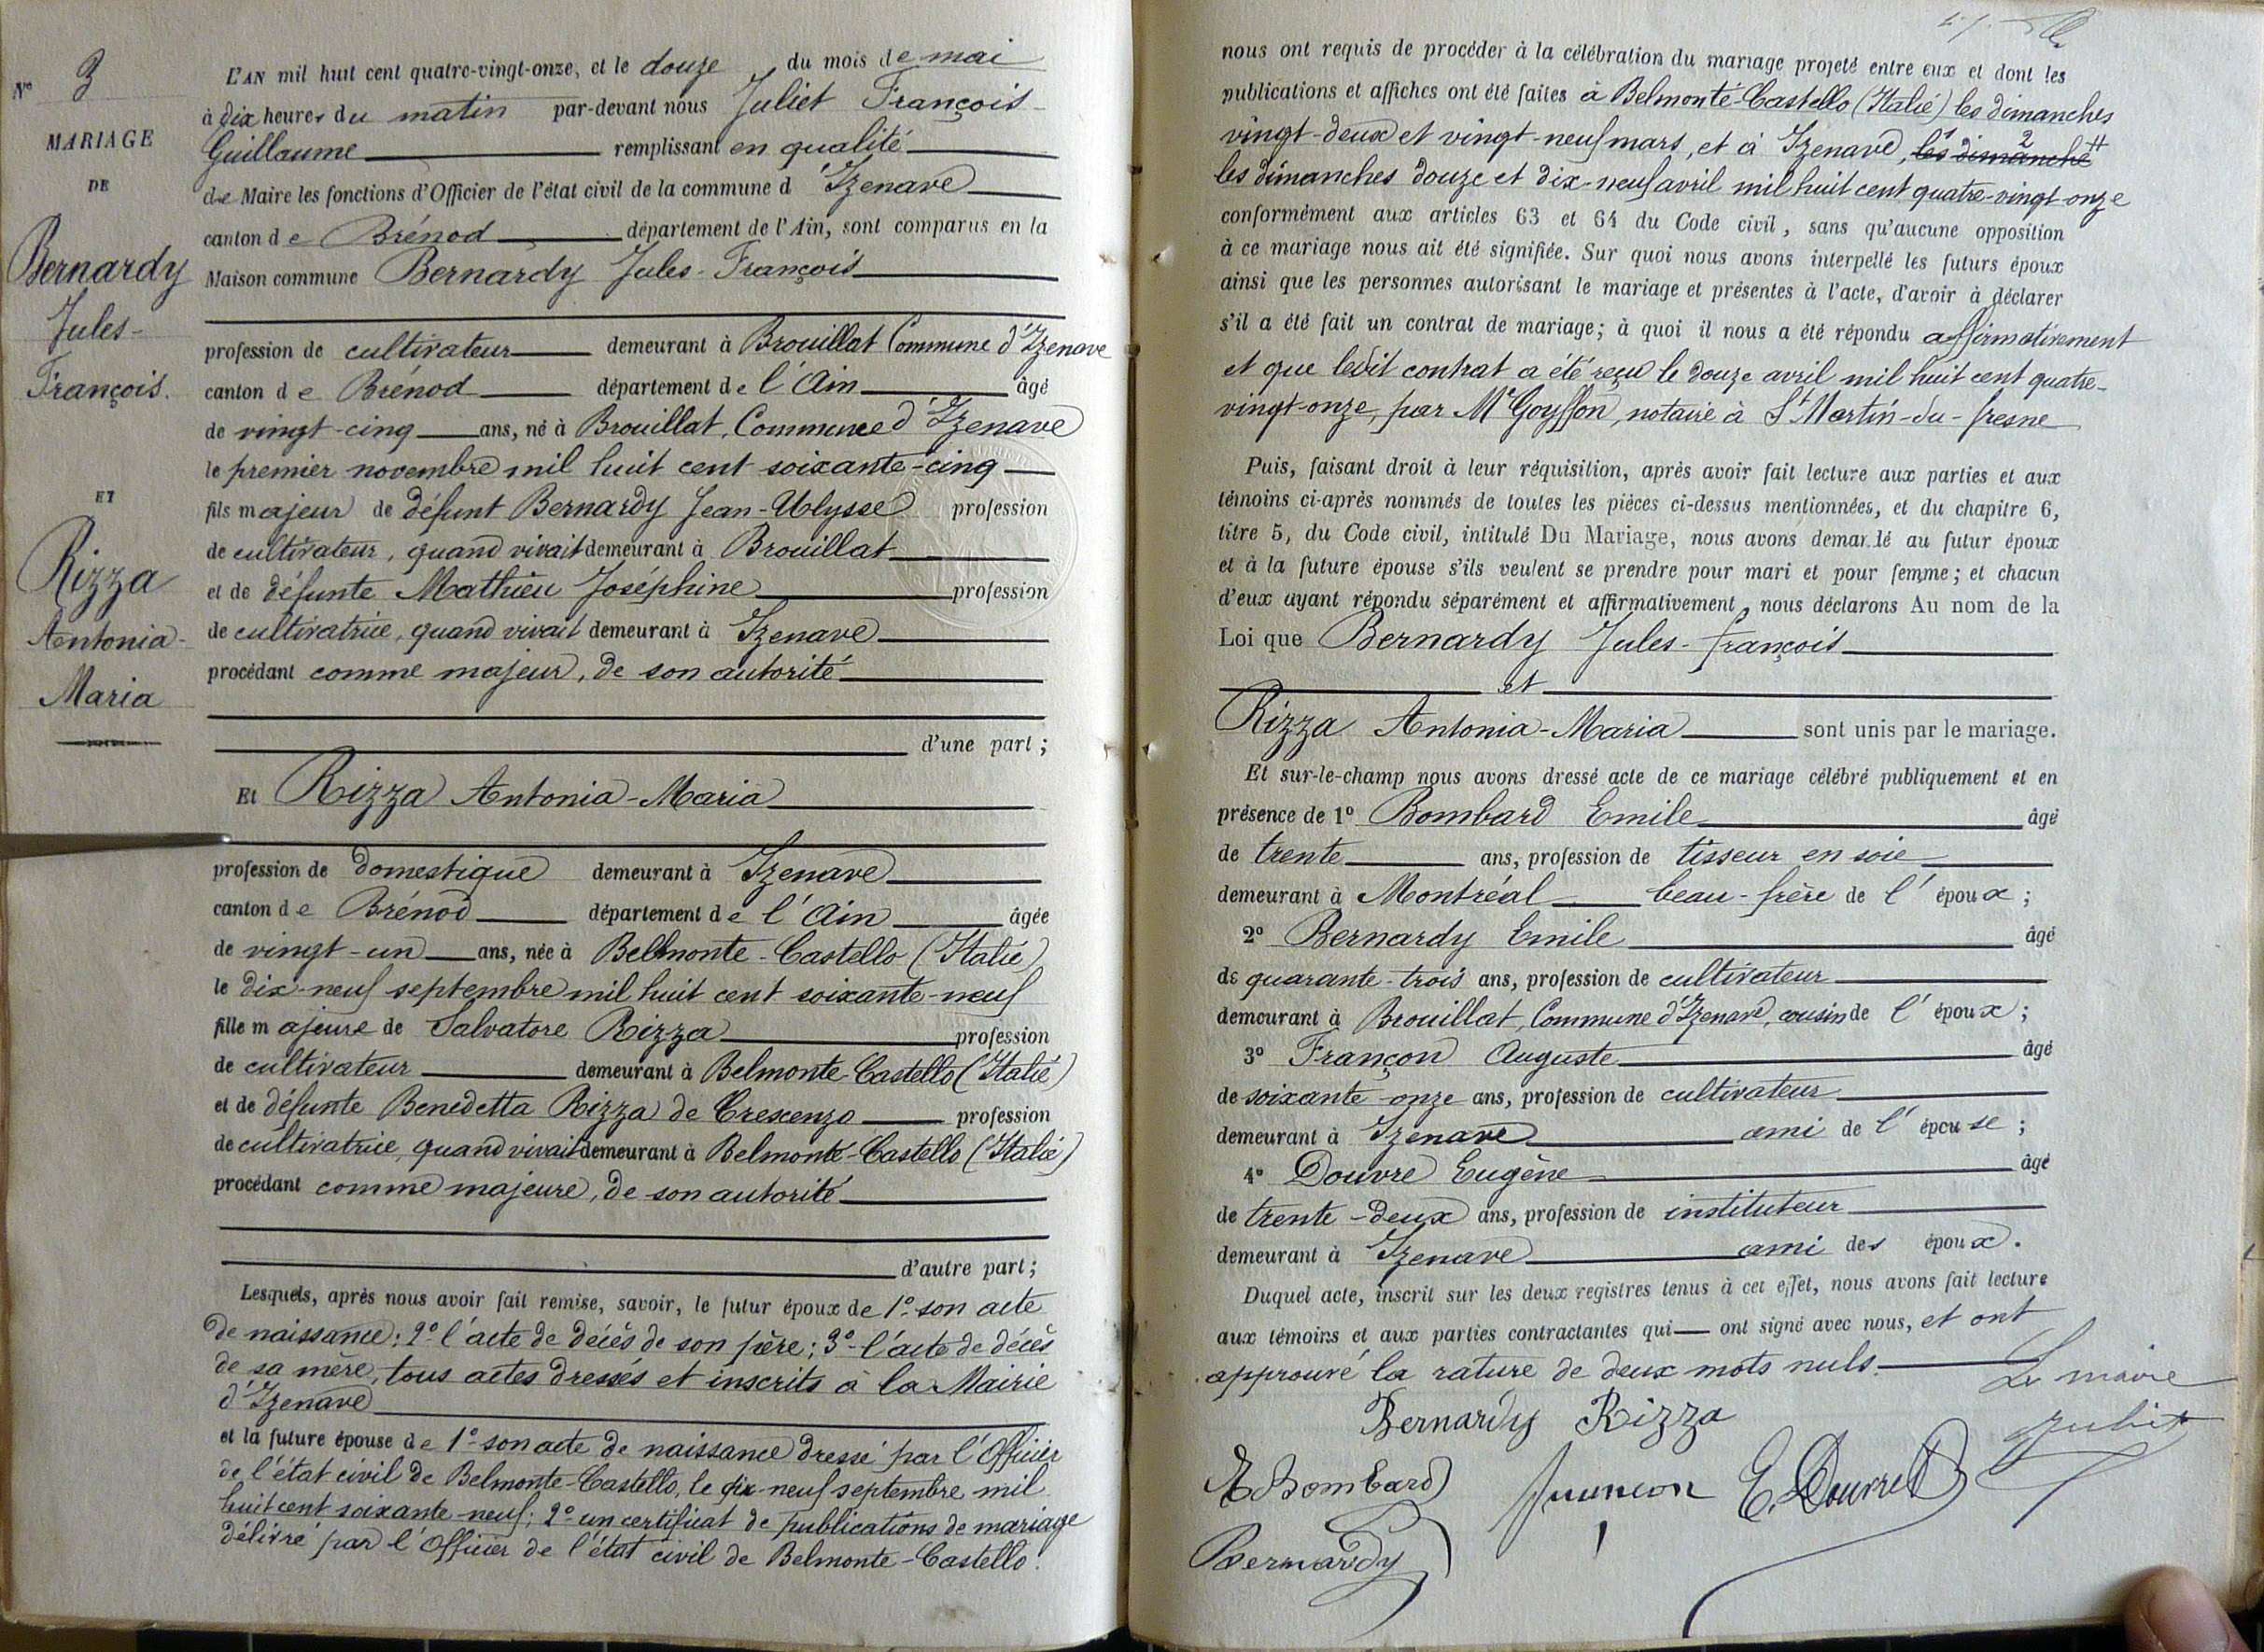 No 3
MARIAGE
DE
Bernardy
Jules-
François.
ET
Rizza
Antonia-
Maria
L'AN mil huit cent quatre-vingt-onze, et le douze du mois de mai
à dix heures du matin par-devant nous Juliet François-
Guillaume remplissant en qualité
de Maire les fonctions d'Officier de l'état civil de la commune d'Izenave
canton de Brénod département de l'Ain, sont comparus en la
Maison commune Bernardy Jules-François
profession de cultivateur demeurant à Brouillat Commune d'Izenave
canton de Brénod département de l'Ain âgé
de vingt-cinq ans, né à Brouillat, Commune d'Izenave
le premier novembre mil huit cent soixante-cinq
fils majeur de défunt Bernardy Jean-Ulysse profession
de cultivateur, quand vivait demeurant à Brouillat
et de défunte Mathieu Joséphine profession
de cultivatrice, quand vivait demeurant à Izenave
procédant comme majeur, de son autorité
d'une part;
Et Rizza Antonia-Maria
profession de domestique demeurant à Izenave
canton de Brénod département de l'Ain âgée
de vingt-un ans, née à Belmonte-Castello (Italie)
le dix-neuf septembre mil huit cent soixante-neuf
fille majeure de Salvatore Rizza profession
de cultivateur demeurant à Belmonte-Castello (Italie)
et de défunte Benedetta Rizza de Crescenzo profession
de cultivatrice, quand vivait demeurant à Belmonte-Castello (Italie)
procédant comme majeure, de son autorité
d'autre part;
Lesquels, après nous avoir fait remise, savoir, le futur époux de 1º son acte
de naissance; 2º l'acte de décès de son père; 3º l'acte de décès
de sa mère, tous actes dressés et inscrits à la Mairie
d'Izenave
et la future épouse de 1º son acte de naissance dressé par l'Officier
de l'état civil de Belmonte-Castello, le dix-neuf septembre mil
huit cent soixante-neuf; 2º un certificat de publications de mariage
délivré par l'Officier de l'état civil de Belmonte-Castello.
nous ont requis de procéder à la célébration du mariage projeté entre eux et dont les
publications et affiches ont été faites à Belmonté-Castello (Italie) les dimanches
vingt-deux et vingt-neuf mars, et à Izenave, les dimanche
les dimanches douze et dix-neuf avril mil huit cent quatre-vingt-onze
conformément aux articles 63 et 64 du Code civil, sans qu'aucune opposition
à ce mariage nous ait été signifiée. Sur quoi nous avons interpellé les futurs époux
ainsi que les personnes autorisant le mariage et présentes à l'acte, d'avoir à déclarer
s'il a été fait un contrat de mariage; à quoi il nous a été répondu affirmativement
et que ledit contrat a été reçu le douze avril mil huit cent quatre-
vingt-onze, par Me Goyffon, notaire à St Martin-du-fresne
Puis, faisant droit à leur réquisition, après avoir fait lecture aux parties et aux
témoins ci-après nommés de toutes les pièces ci-dessus mentionnées, et du chapitre 6,
titre 5, du Code civil, intitulé Du Mariage, nous avons demandé au futur époux
et à la future épouse s'ils veulent se prendre pour mari et pour femme; et chacun
d'eux ayant répondu séparément et affirmativement, nous déclarons Au nom de la
Loi que Bernardy Jules-françois
et
Rizza Antonia-Maria sont unis par le mariage.
Et sur-le-champ nous avons dressé acte de ce mariage célébré publiquement et en
présence de 1º Bombard Emile âgé
de trente ans, profession de tisseur en soie
demeurant à Montréal beau-frère de l'époux;
2º Bernardy Emile âgé
de quarante-trois ans, profession de cultivateur
demeurant à Brouillat, Commune d'Izenave, cousin de l'époux;
3º Françon Auguste âgé
de soixante-onze ans, profession de cultivateur
demeurant à Izenave ami de l'épouse;
4º Douvre Eugène âgé
de trente-deux ans, profession de instituteur
demeurant à Izenave ami des époux.
Duquel acte, inscrit sur les deux registres tenus à cet effet, nous avons fait lecture
aux témoins et aux parties contractantes qui ont signé avec nous, et ont
approuvé la rature de deux mots nuls.
Le maire
Bernardy Rizza
Juliet
E Bombard Françon E. Douvre
Bernardy